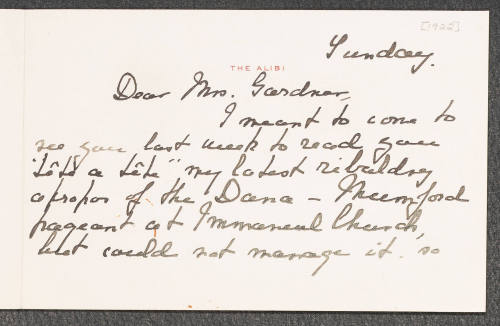 [1922]
Sunday.
THE ALIBI
Dear Mrs. Gardner,
I meant to come to
see you last week to read you
"tête a tête" my latest ribaldry
apropos of the Dana – Mumford
pageant at Immanuel Church,
but could not manage it. so